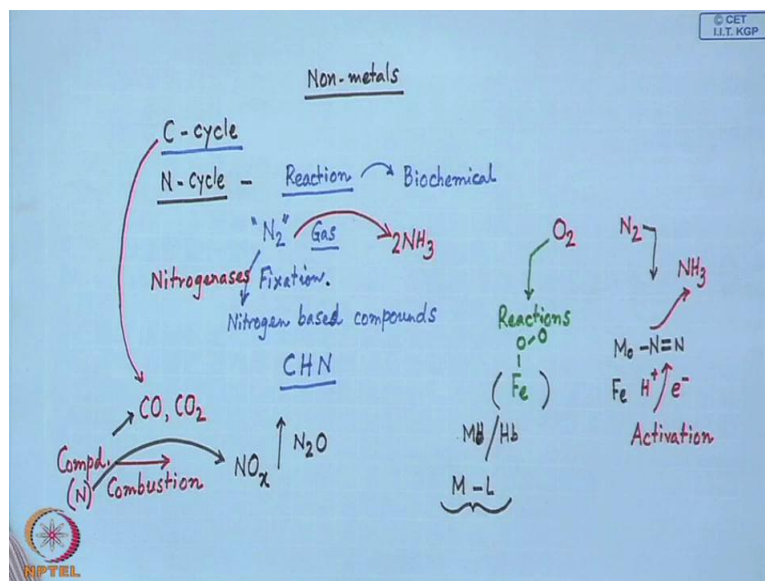 © CET
I.I.T. KGP
Non-metals
C-cycle
N-cycle - Reaction Biochemical
"N2" Gas 2NH3
Nitrogenases Fixation.
Nitrogen based compounds
CHN
CO, CO2
Compd. (N) Combustion
NOx N2O
O2
Reactions
O-O
(Fe)
Mb/Hb
M-L
N2
NH3
Mo-N≡N
Fe H+/e-
Activation
NPTEL